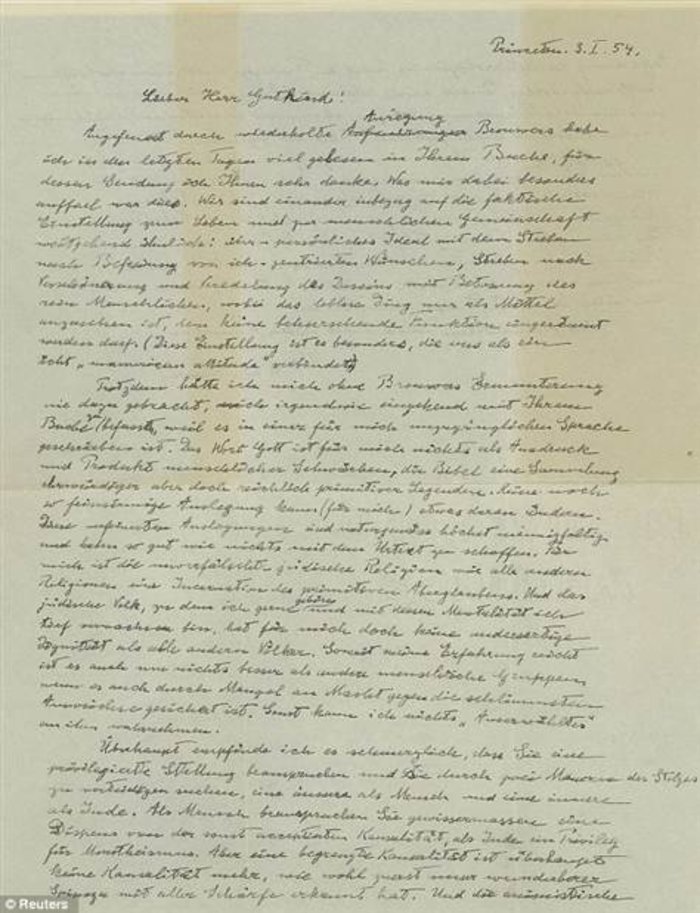 Princeton. 3. I. 54.
Lieber Herr Gutkind!
Anregung
Angefeuert durch wiederholte Brouwers habe
ich in den letzten Tagen viel gelesen in Ihrem Buche, für
dessen Sendung ich Ihnen sehr danke. Was mir dabei besonders
auffiel war dies. Wir sind einander inbezug auf die faktische
Einstellung zum Leben und zur menschlichen Gemeinschaft
weitgehend ähnlich: persönliches Ideal mit dem Streben
nach Befreiung von ich-zentrierten Wünschen, Streben nach
Verschönerung und Veredelung des Daseins mit Betonung des
rein Menschlichen, wobei das leblose Ding nur als Mittel
anzusehen ist, dem keine beherrschende Funktion eingeräumt
werden darf. (Diese Einstellung ist es besonders, die uns als ein
echt „unamerican attitude" verbindet)
Trotzdem hätte ich mich ohne Brouwers Ermunterung
nie dazu gebracht, mich irgendwie eingehend mit Ihrem
Buche befasst, weil es in einer für mich unzugänglichen Sprache
geschrieben ist. Das Wort Gott ist für mich nichts als Ausdruck
und Produkt menschlicher Schwächen, die Bibel eine Sammlung
ehrwürdiger aber doch reichlich primitiver Legenden. Keine noch
so feinsinnige Auslegung kann (für mich) etwas daran ändern.
Diese verfeinerten Auslegungen sind naturgemäss höchst mannigfaltig
und haben so gut wie nichts mit dem Urtext zu schaffen. Für
mich ist die unverfälschte jüdische Religion wie alle anderen
Religionen eine Incarnation des primitiven Aberglaubens. Und das
gehöre
jüdische Volk, zu dem ich gern und mit dessen Mentalität ich
tief verwachsen bin, hat für mich doch keine andersartige
Dignität als alle anderen Völker. Soweit meine Erfahrung reicht
ist es auch um nichts besser als andere menschliche Gruppen,
wenn es auch durch Mangel an Macht gegen die schlimmsten
Auswüchse gesichert ist. Sonst kann ich nichts „Auserwähltes"
an ihm wahrnehmen.
Überhaupt empfinde ich es schmerzlich, dass Sie eine
privilegierte Stellung beanspruchen und Sie durch zwei Mauern des Stolzes
zu verteidigen suchen, eine äussere als Mensch und eine innere
als Jude. Als Mensch beanspruchen Sie gewissermassen einen
Dispens von der sonst acceptierten Kausalität, als Jude ein Privileg
für Monotheismus. Aber eine begrenzte Kausalität ist überhaupt
keine Kausalität mehr, wie wohl zuerst unser wunderbarer
Spinoza mit aller Schärfe erkannt hat. Und die animistische
© Reuters